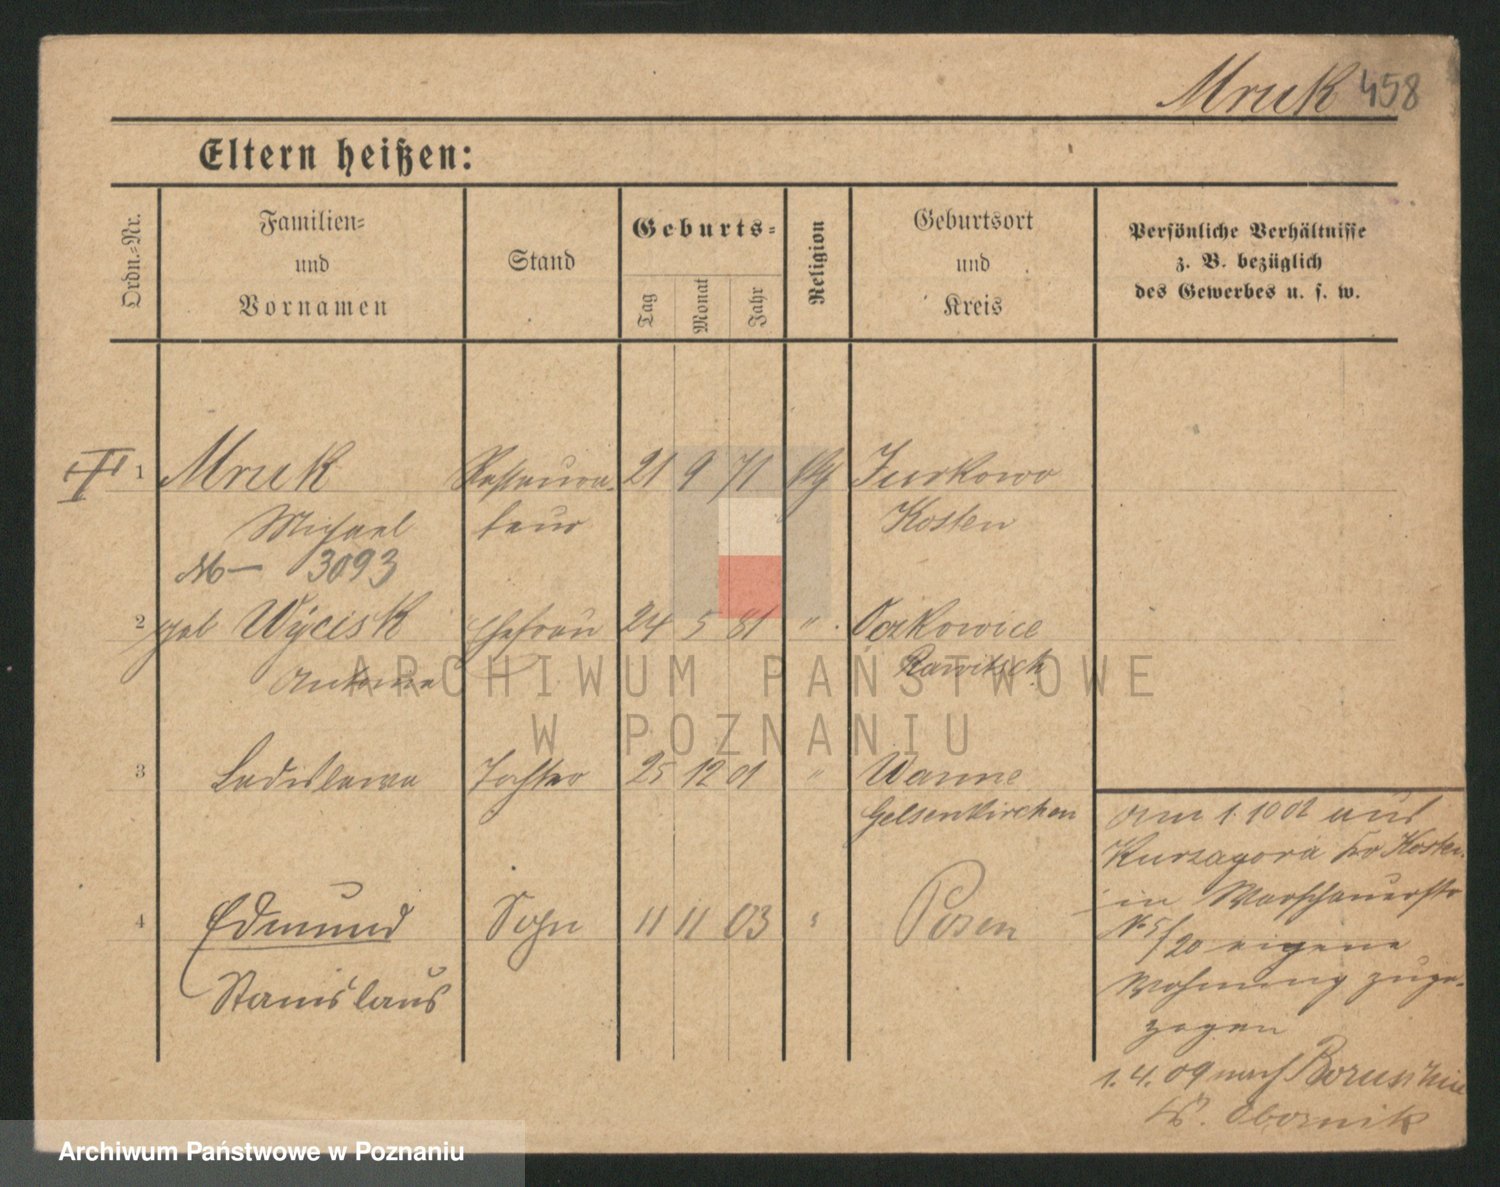 Mruk 458
Eltern heißen:
Ordn.=Nr.
Familien=
und
Vornamen
Stand
Geburts=
Tag
Monat
Jahr
Religion
Geburtsort
und
Kreis
Persönliche Verhältnisse
z. B. bezüglich
des Gewerbes u. s. w.
1 Mruk Restaura- 21 9 71 Jurkowo
Michael teur Kosten
3093
2 geb Wÿcisk Ehefrau 24 5 81 " Oczkowice
Antonie Rawitsch
3 Ladislawa Tochter 25 12 01 " Wanne
Gelsenkirchen
4 Edmund Sohn 11 11 03 Posen
Stanislaus
am 1.10 01 aus
Kurzagora Kr Kosten
in Warschauerstr
No 5/20 eigene
Wohnung zuge-
zogen
1.4.09 nach Boruschin
Kr. Obornik
ARCHIWUM PAŃSTWOWE
W POZNANIU
Archiwum Państwowe w Poznaniu